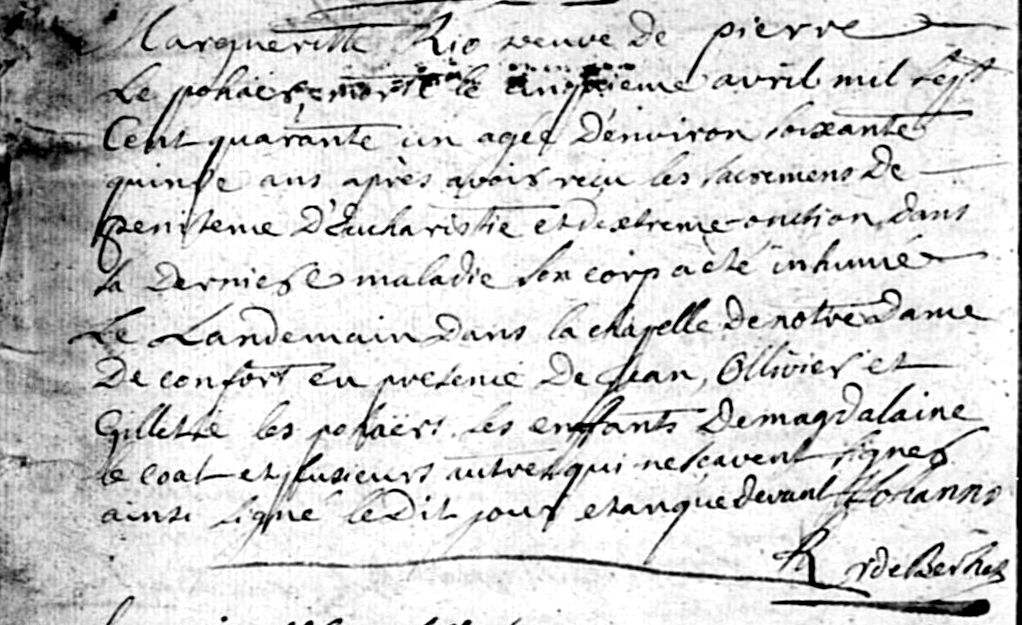 Margueritte Rio veuve de pierre
Le pohaër, morte le cinquieme avril mil sept
Cent quarante un agée D'environ soixante
quinse ans après avoir reçu les sacremens De
penitence D'Eucharistie et d'extreme-onction dans
sa derniere maladie son corp a eté inhumé
Le Landemain Dans la chapelle De notre Dame
De confort en presence De jean, Ollivier et
Gillette les pohaërs ses enffants De magdalaine
le coat et plusieurs autres qui ne sçavent signer
ainsi signé le Dit jour et an que devant
R r de Berhet